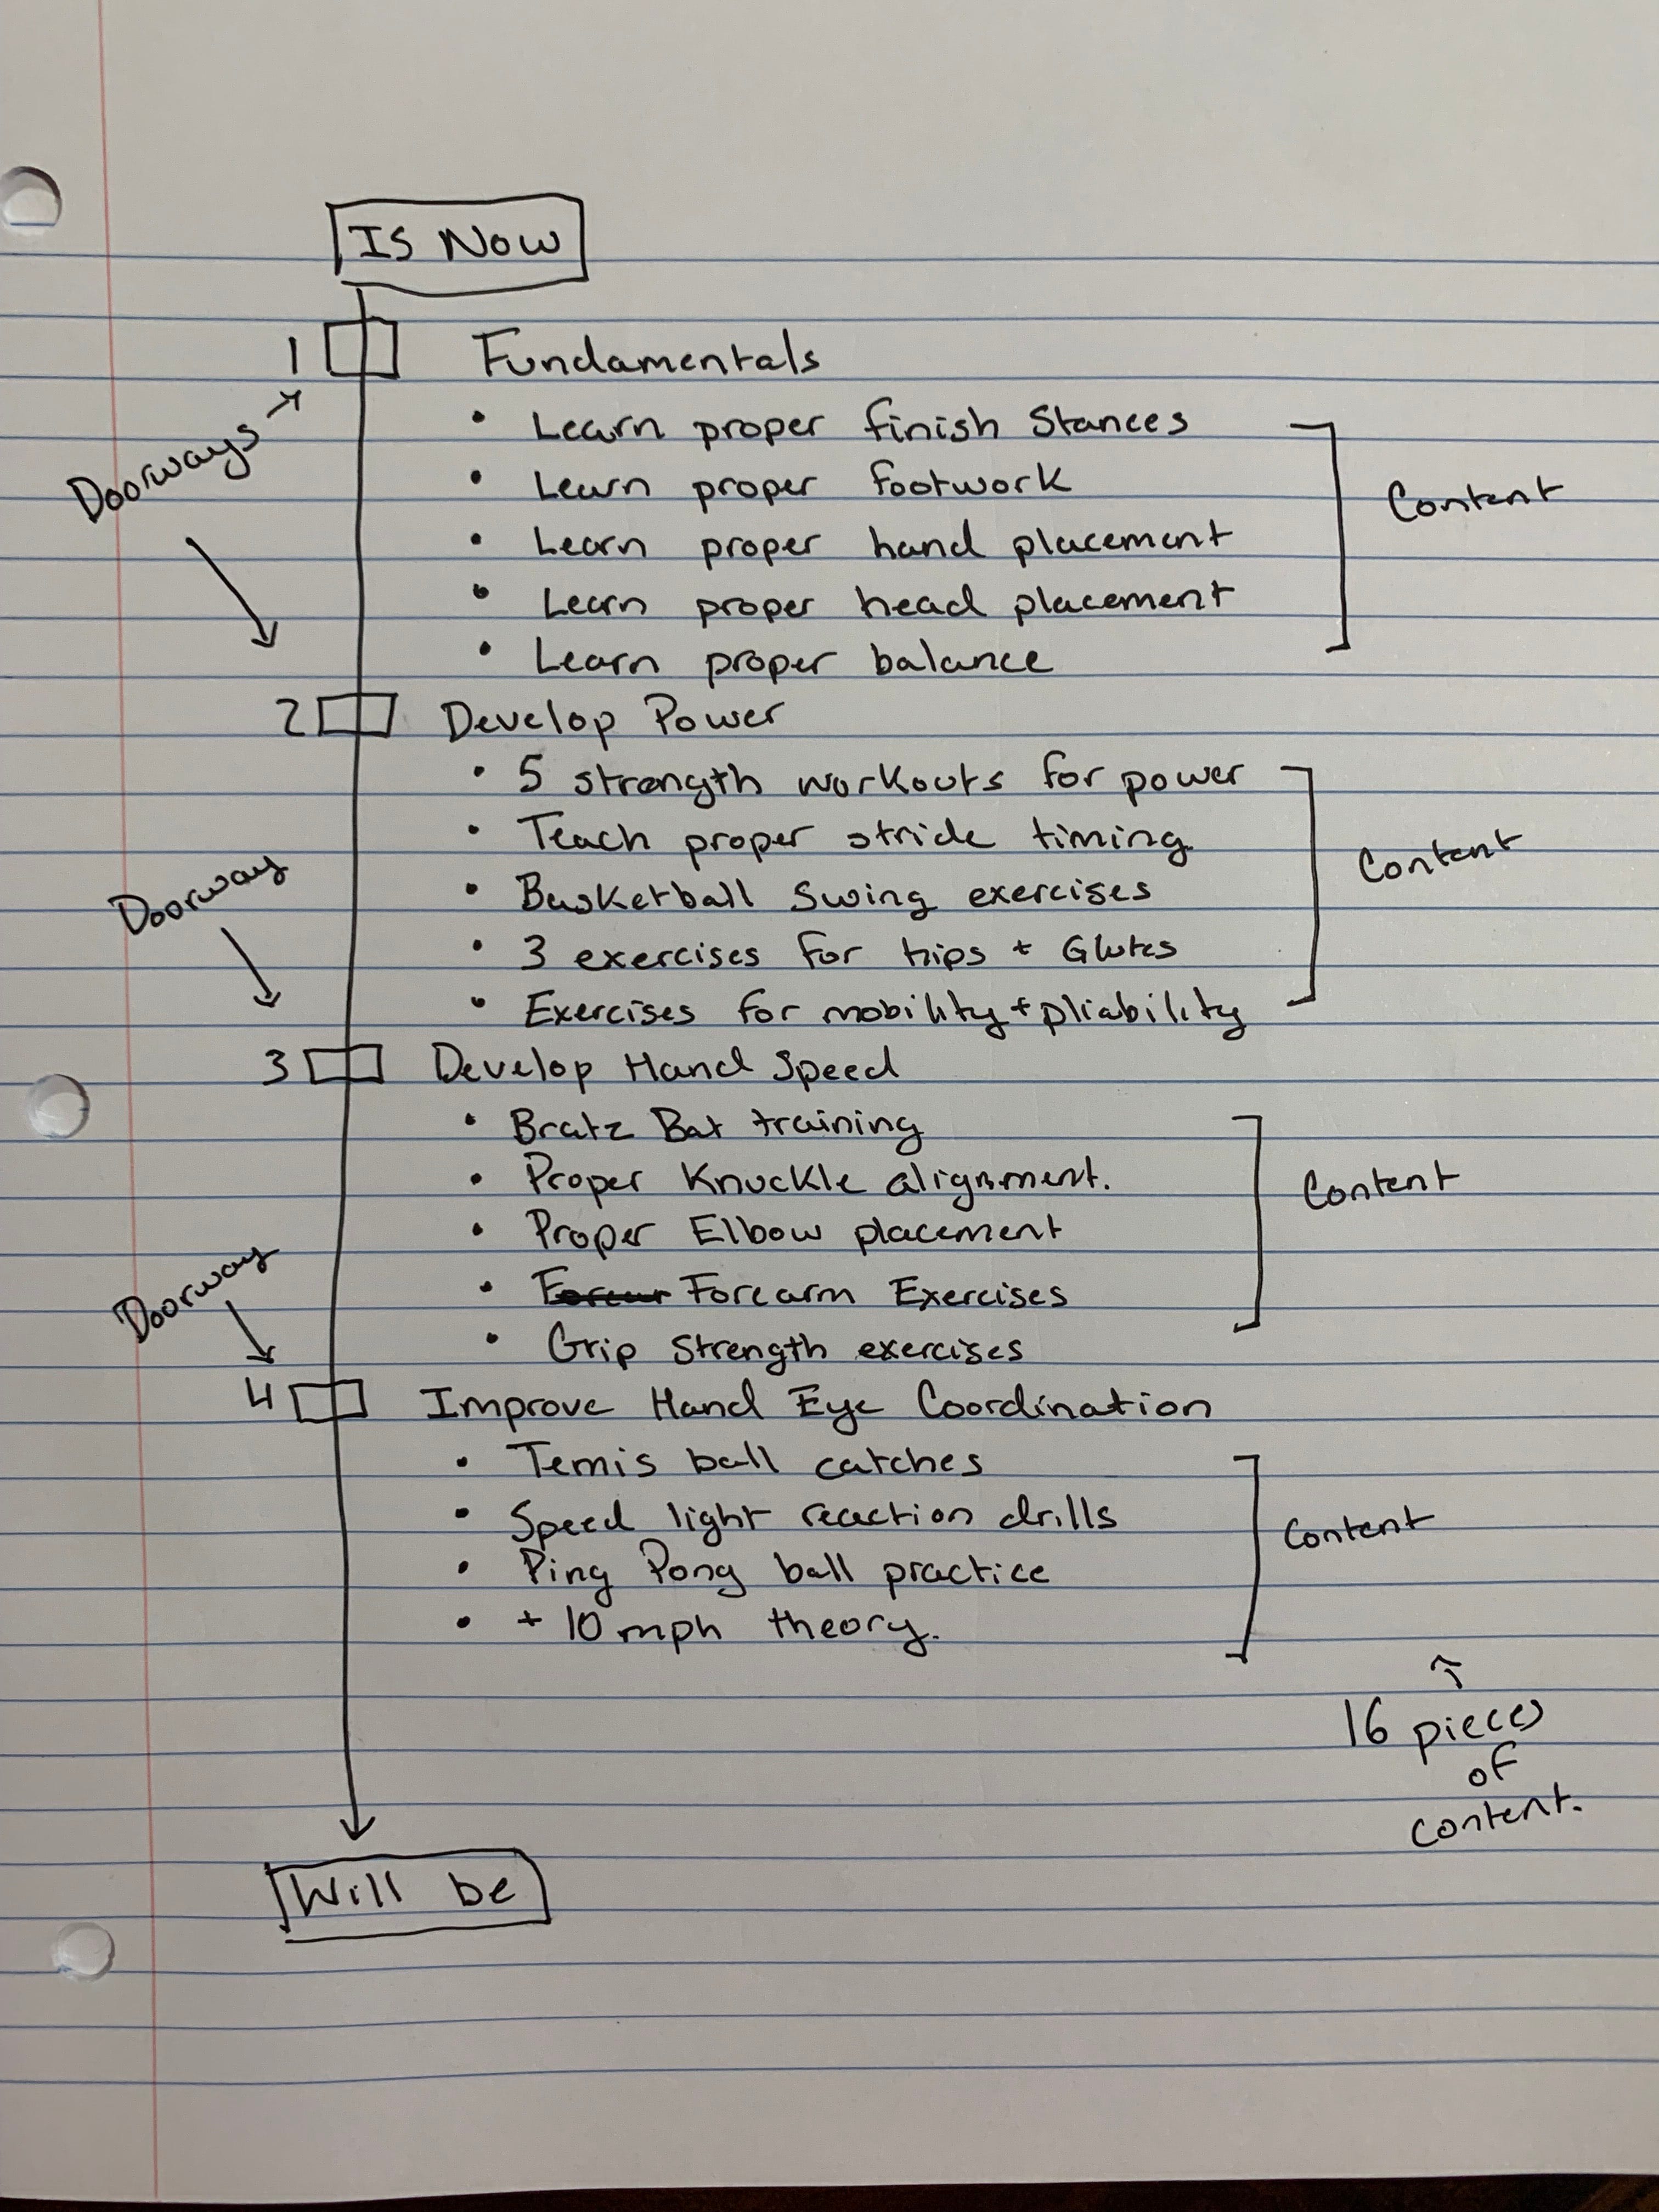 Is Now
1 Fundamentals
Doorways
• Learn proper finish stances
• Learn proper footwork
• Learn proper hand placement
• Learn proper head placement
• Learn proper balance
Content
2 Develop Power
• 5 strength workouts for power
• Teach proper stride timing.
• Basketball Swing exercises
• 3 exercises for hips + Glutes
• Exercises for mobility + pliability
Content
Doorway
3 Develop Hand Speed
• Bratz Bat training
• Proper Knuckle alignment.
• Proper Elbow placement
• Forearm Exercises
• Grip Strength exercises
Content
Doorway
4 Improve Hand Eye Coordination
• Tennis ball catches
• Speed light reaction drills
• Ping Pong ball practice
• + 10 mph theory.
Content
16 pieces
of
content.
Will be